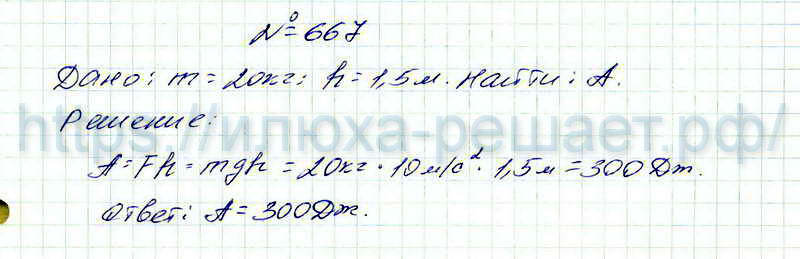 № 667
Дано: m = 20кг; h = 1,5м. Найти: A.
Решение:
https://илюха-решает.рф/
A = Fh = mgh = 20кг · 10м/с² · 1,5м = 300Дж.
Ответ: A = 300Дж.